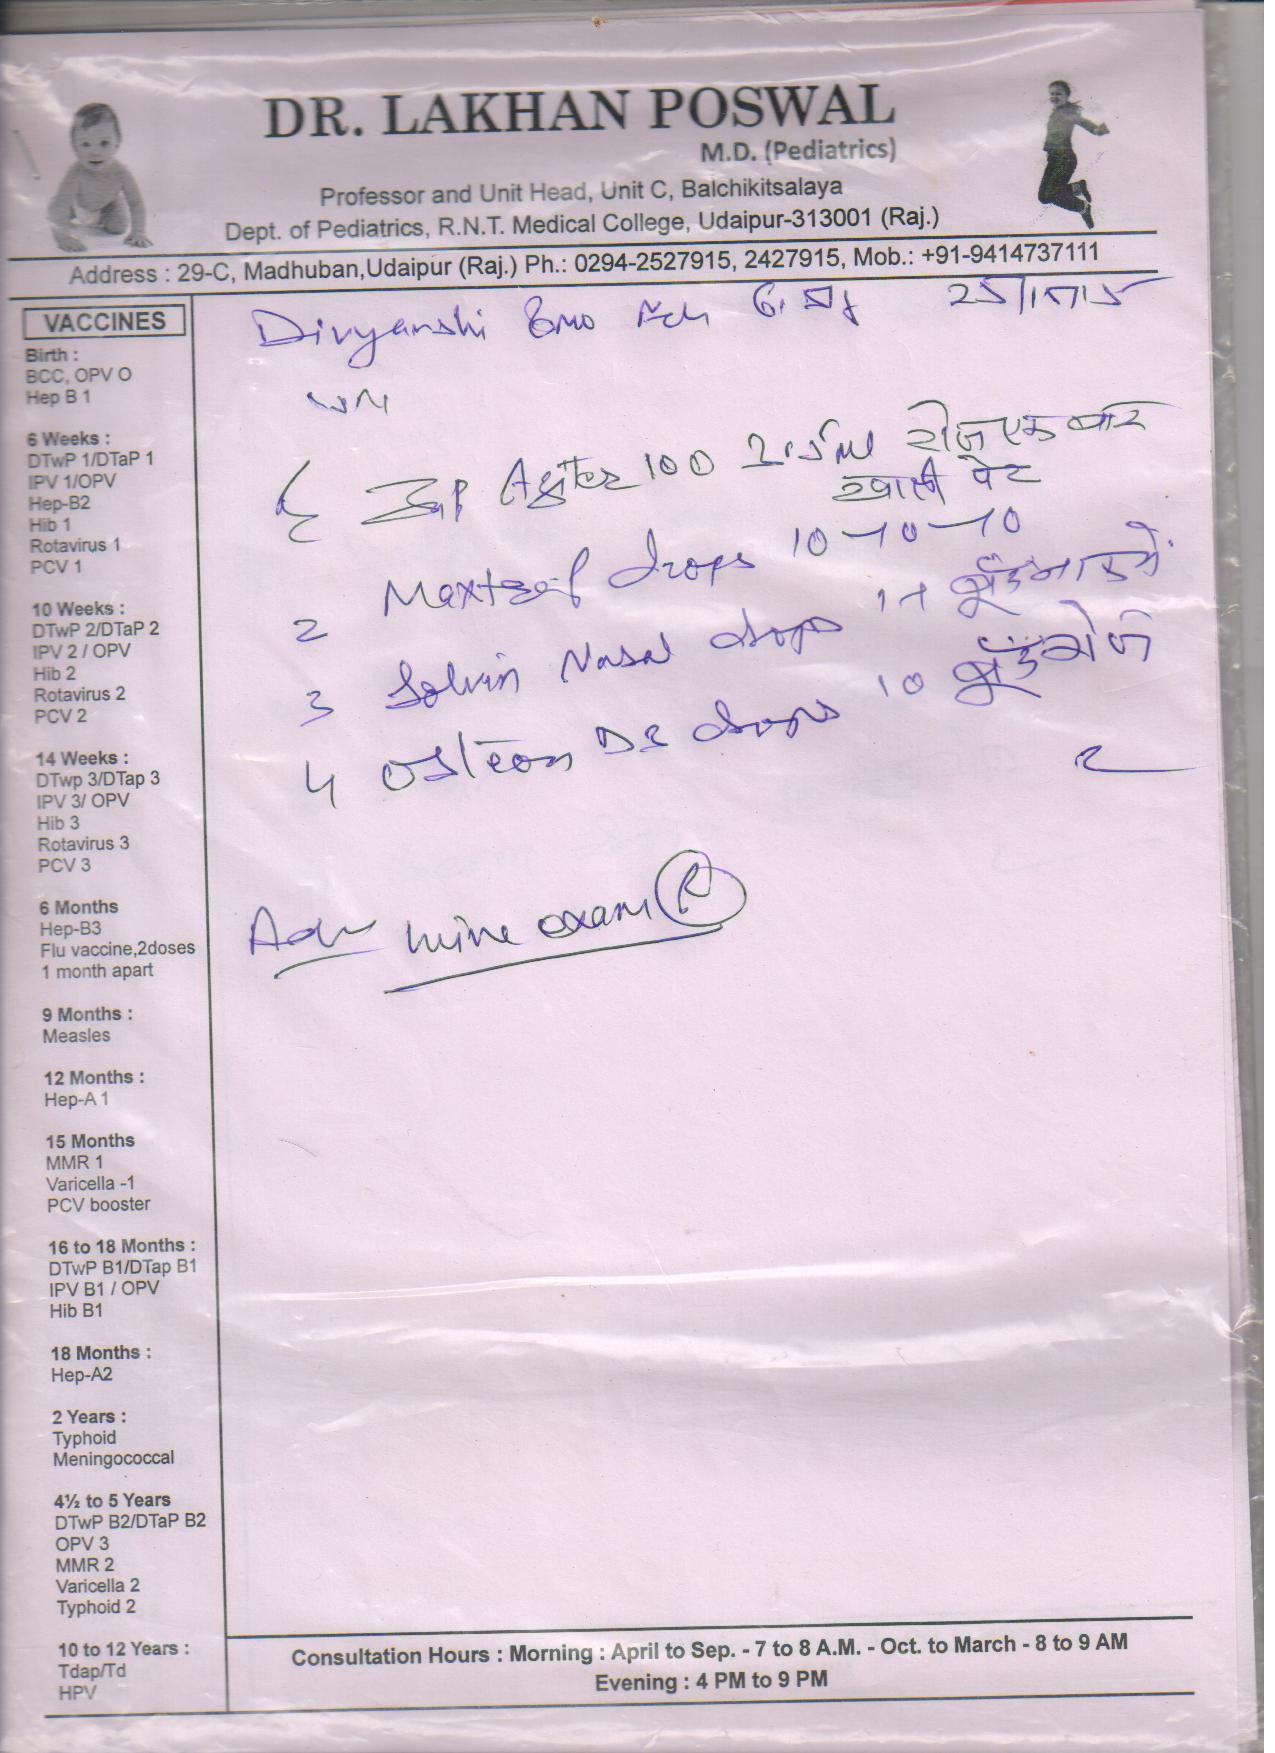 DR. LAKHAN POSWAL
M.D. (Pediatrics)
Professor and Unit Head, Unit C, Balchikitsalaya
Dept. of Pediatrics, R.N.T. Medical College, Udaipur-313001 (Raj.)
Address : 29-C, Madhuban,Udaipur (Raj.) Ph.: 0294-2527915, 2427915, Mob.: +91-9414737111
VACCINES
Birth :
BCC, OPV O
Hep B 1
6 Weeks :
DTwP 1/DTaP 1
IPV 1/OPV
Hep-B2
Hib 1
Rotavirus 1
PCV 1
10 Weeks :
DTwP 2/DTaP 2
IPV 2 / OPV
Hib 2
Rotavirus 2
PCV 2
14 Weeks :
DTwp 3/DTap 3
IPV 3/ OPV
Hib 3
Rotavirus 3
PCV 3
6 Months
Hep-B3
Flu vaccine,2doses
1 month apart
9 Months :
Measles
12 Months :
Hep-A 1
15 Months
MMR 1
Varicella -1
PCV booster
16 to 18 Months :
DTwP B1/DTap B1
IPV B1 / OPV
Hib B1
18 Months :
Hep-A2
2 Years :
Typhoid
Meningococcal
4½ to 5 Years
DTwP B2/DTaP B2
OPV 3
MMR 2
Varicella 2
Typhoid 2
10 to 12 Years :
Tdap/Td
HPV
Divyanshi 8mo Fch
100 2.5ml रोज एक बार
खाली पेट
2 drops 10-10-10
3 Solvin Nasal drops 1-1 बूँद नाक में
4 Osteon D3 drops 10 बूँद रोज
Adv urine exam (R)
Consultation Hours : Morning : April to Sep. - 7 to 8 A.M. - Oct. to March - 8 to 9 AM
Evening : 4 PM to 9 PM